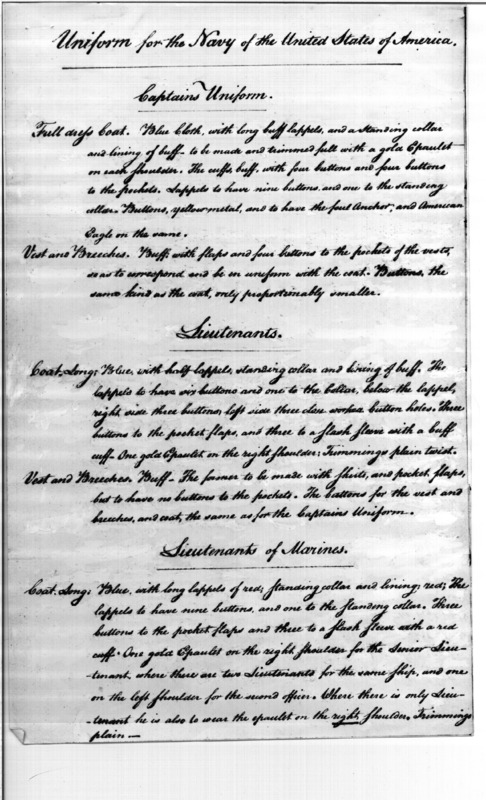 Uniform for the Navy of the United States of America.
Captains Uniform.
Full dress Coat. Blue Cloth, with long buff lappels, and a Standing collar
and lining of buff - to be made and trimmed full with a gold Epaulet
on each shoulder. The cuffs, buff, with four buttons and four buttons
to the pockets. Lappels to have nine buttons, and one to the standing
collar. Buttons, yellow metal, and to have the foul Anchor, and American
Eagle on the same.
Vest and Breeches. Buff; with flaps and four buttons to the pockets of the vests,
so as to correspond and be in uniform with the coat. Buttons, the
same kind as the coat, only proportionably smaller.
Lieutenants.
Coat, Long; Blue, with half lappels, standing collar and lining of buff. The
lappels to have six buttons and one to the collar, below the lappel,
right side three buttons, left side three close worked button holes. Three
buttons to the pocket flaps, and three to a slash sleeve with a buff
cuff. One gold Epaulet on the right shoulder; Trimmings plain twist.
Vest and Breeches. Buff. The former to be made with skirts, and pocket flaps,
but to have no buttons to the pockets. The buttons for the vest and
breeches, and coat, the same as for the Captains Uniform.
Lieutenants of Marines.
Coat. Long; Blue, with long lappels of red; standing collar and lining red; The
lappels to have nine buttons, and one to the standing collar. Three
buttons to the pocket flaps and three to a slash sleeve with a red
cuff. One gold Epaulet on the right shoulder for the Senior Lieu-
-tenant, where there are two Lieutenants for the same ship, and one
on the left shoulder for the second officer. Where there is only Lieu-
-tenant he is also to wear the epaulet on the right shoulder. Trimmings
plain —